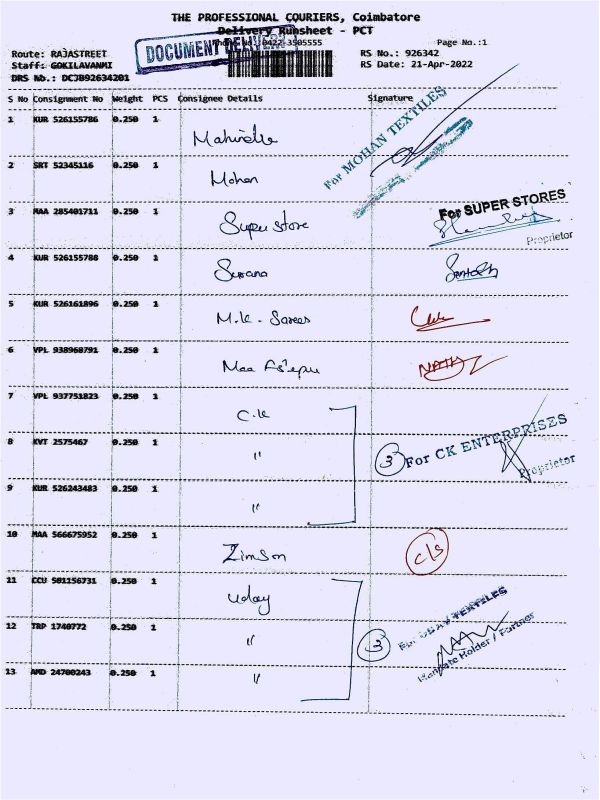 THE PROFESSIONAL COURIERS, Coimbatore
Delivery Runsheet - PCT
Phone No:0422-3505555 Page No.:1
DOCUMENT DELIVERY
Route: RAJASTREET RS No.: 926342
Staff: GOKILAVANMI RS Date: 21-Apr-2022
DRS No.: DCJB92634201
S No Consignment No Weight PCS Consignee Details Signature
1 KUR 526155786 0.250 1 Mahindra For MOHAN TEXTILES
2 SRT 52345116 0.250 1 Mohan
3 MAA 285401711 0.250 1 Super store For SUPER STORES
Proprietor
4 KUR 526155788 0.250 1 Surana Santosh
5 KUR 526161896 0.250 1 M.K - Sarees
6 VPL 938960791 0.250 1 Maa
7 VPL 937751823 0.250 1 C.K
8 KVT 2575467 0.250 1 " 3 For CK ENTERPRISES
Proprietor
9 KUR 526243483 0.250 1 "
10 MAA 566675952 0.250 1 Zimson c/s
11 CCU 501156731 0.250 1 Uday
12 TRP 1740772 0.250 1 " 3 For UDAY TEXTILES
13 AMD 24700243 0.250 1 " Mandate Holder / Partner